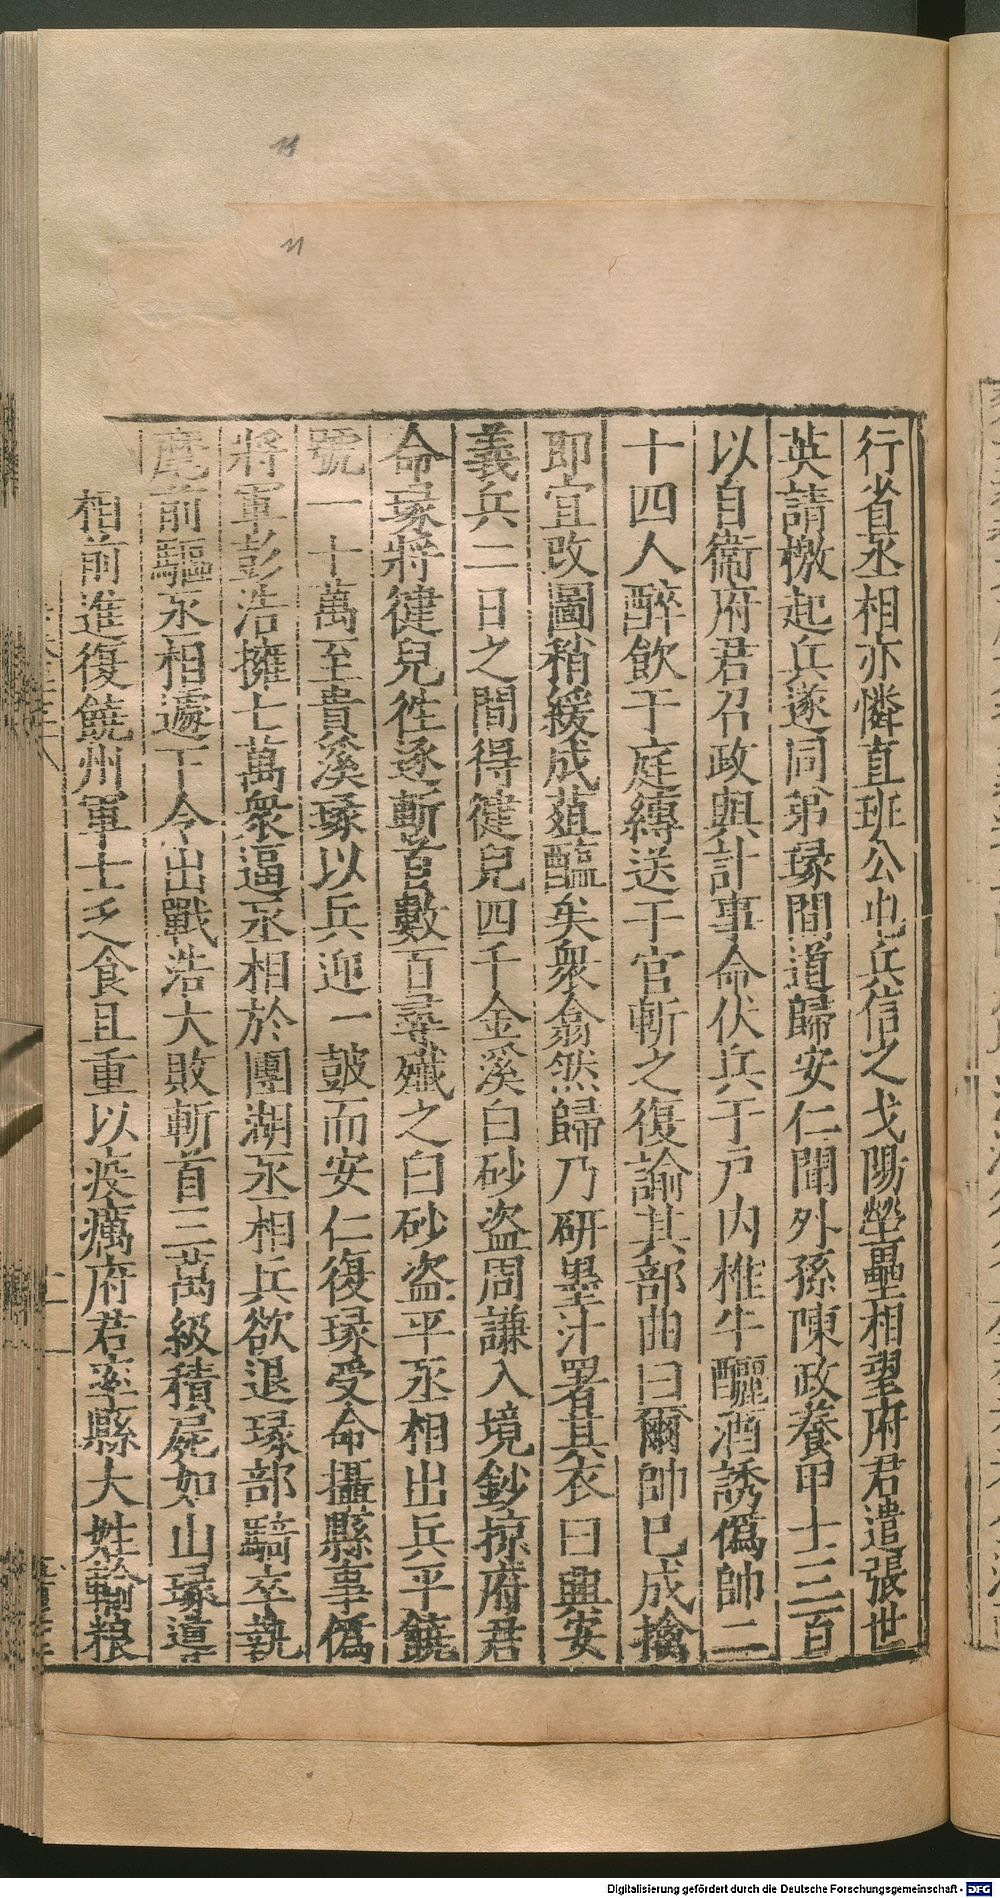 行省丞相亦憐直班公屯兵信之戈陽壁壘相望府君遣張世
英請檄起兵遂同弟琭間道歸安仁聞外孫陳政養甲士三百
以自衞府君召政與計事命伏兵于戶內椎牛釃酒誘僞帥二
十四人醉飮于庭縛送于官斬之復諭其部曲曰爾帥已成擒
卽宜改圖稍緩成葅醢矣衆翕然歸乃研墨汁署其衣曰興安
義兵二日之間得健兒四千金溪白砂盜周謙入境鈔掠府君
命琭將健兒徃逐斬首數百尋殲之白砂盜平丞相出兵平饒
號一十萬至貴溪琭以兵迎一鼓而安仁復琭受命攝縣事僞
將軍彭浩擁七萬衆逼丞相於團湖丞相兵欲退琭部騎卒執
麾前驅丞相遽下令出戰浩大敗斬首三萬級積屍如山琭導
相前進復饒州軍士乏食且重以疫癘府君率縣大姓輸粮
Digitalisierung gefördert durch die Deutsche Forschungsgemeinschaft - DFG